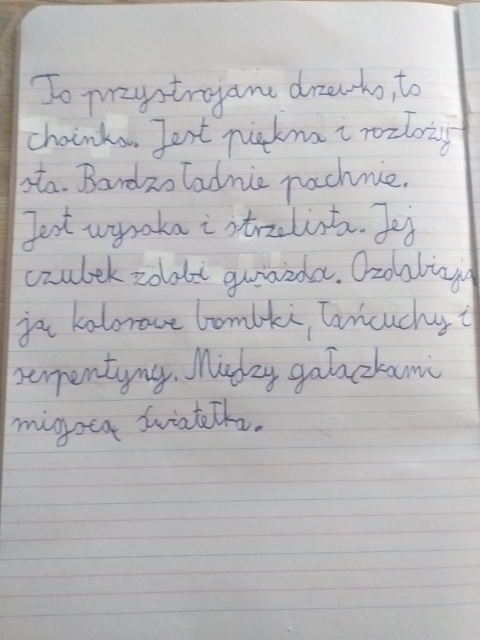 To przystrojane drzewko, to
choinka. Jest piękna i rozłoży-
sta. Bardzo ładnie pachnie.
Jest wysoka i strzelista. Jej
czubek zdobi gwiazda. Ozdabiają
ją kolorowe bombki, łańcuchy i
serpentyny. Między gałązkami
migocą światełka.